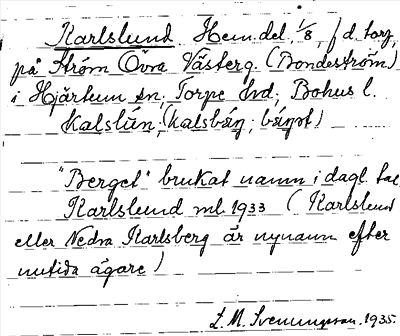 Karlslund Hem.del. 1/8, f d. torp,
på Ström Övra Västerg. (Bondeström)
i Hjärtum sn, Torpe hd, Bohus l.
Kalslún, (kalsbærj, bærjət)
"Berget" brukat namn i dagl. tal,
Karlslund ml. 1933 (Karlslund
eller Nedra Karlsberg är nynamn efter
nutida ägare)
L. M. Svenungsson. 1935.